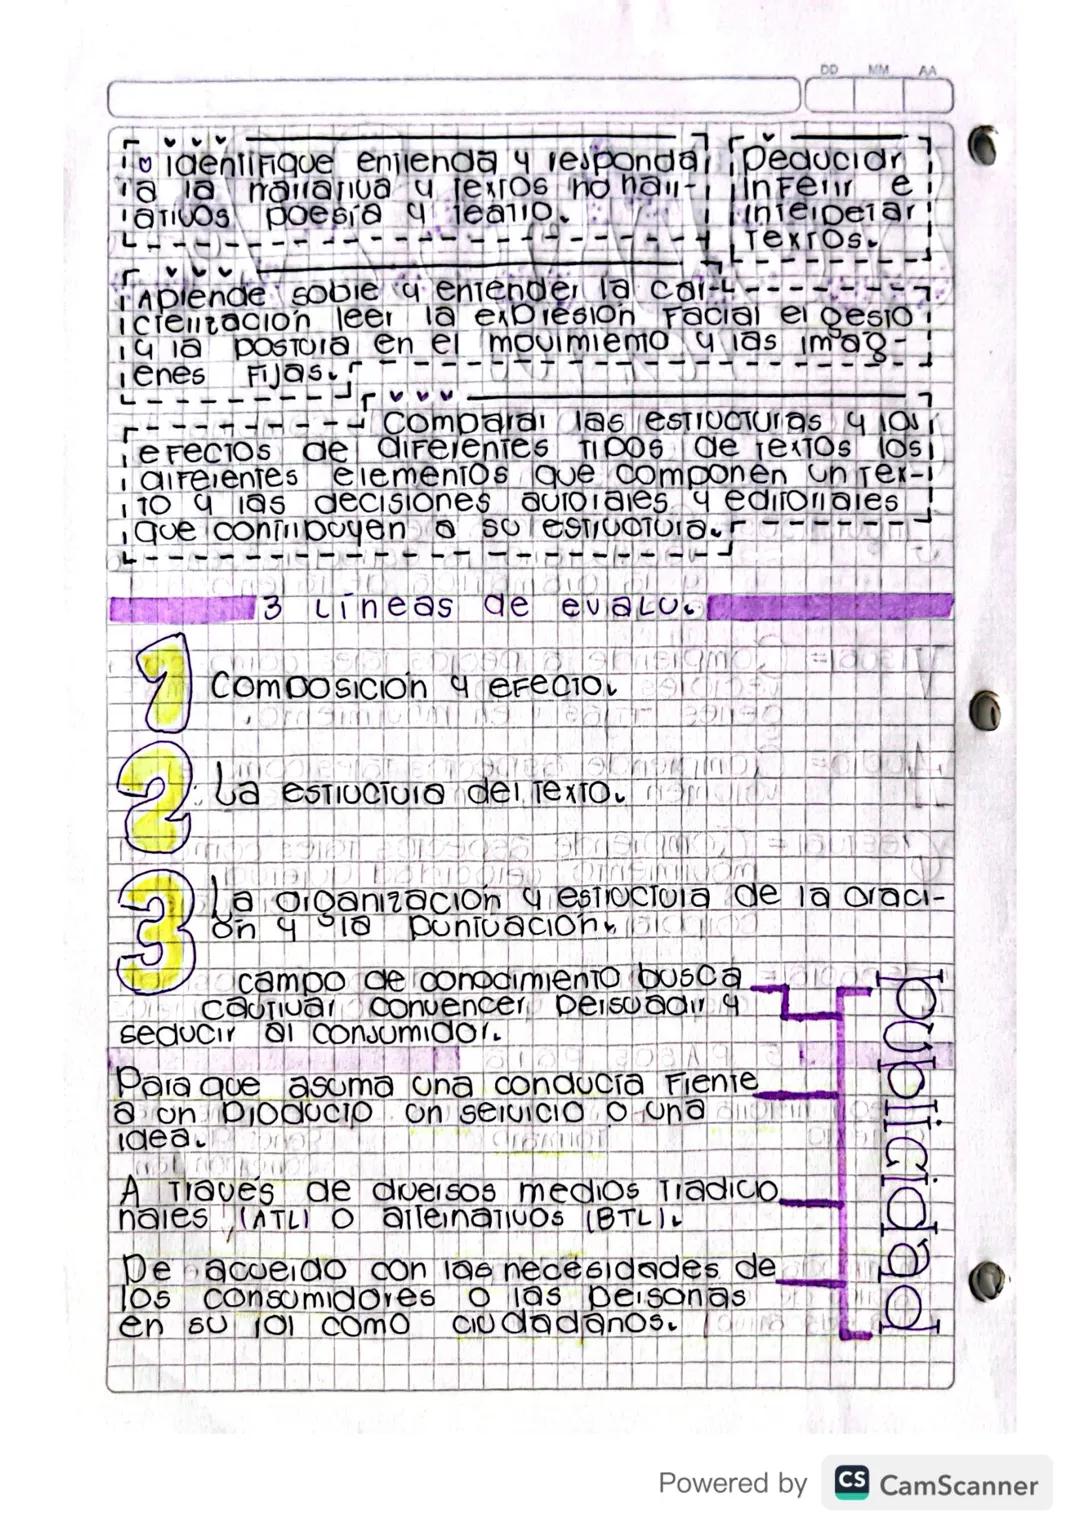 DD MM AA
identifique entienda y responda
a la narrativa y textos no narr-
ativos poesía y teatro.
Deducidr
inferir e
interpetar
textos.
Aprende sobre y entender la car-
icterización leer la expresión facial el gesto
y la postura en el movimiento y las imag-
enes fijas.
Comparar las estructuras y los
efectos de diferentes tipos de textos los
diferentes elementos que componen un tex-
to y las decisiones autorales y editoriales
que contribuyen a su estructura.
3 Líneas de evalu.
1 Composición y efecto.
2 La estructura del texto.
3 La organización y estructura de la oraci-
ón y la puntuación.
publicidad
campo de conocimiento busca
cautivar convencer persuadir y
seducir al consumidor.
Para que asuma una conducta frente
a un producto un servicio o una
idea.
A través de diversos medios tradicio
nales (ATL) o alternativos (BTL).
De acuerdo con las necesidades de
los consumidores o las personas
en su rol como ciudadanos.
Powered by CS CamScanner